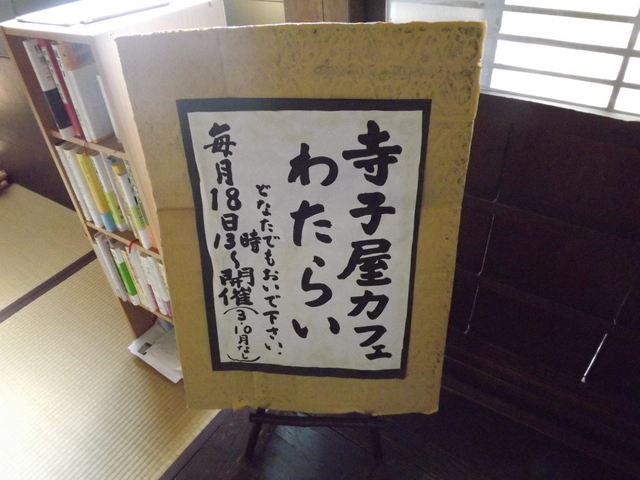 寺子屋カフェ
わたらい
どなたでもおいで下さい.
毎月18日13時〜開催(3.10月なし)